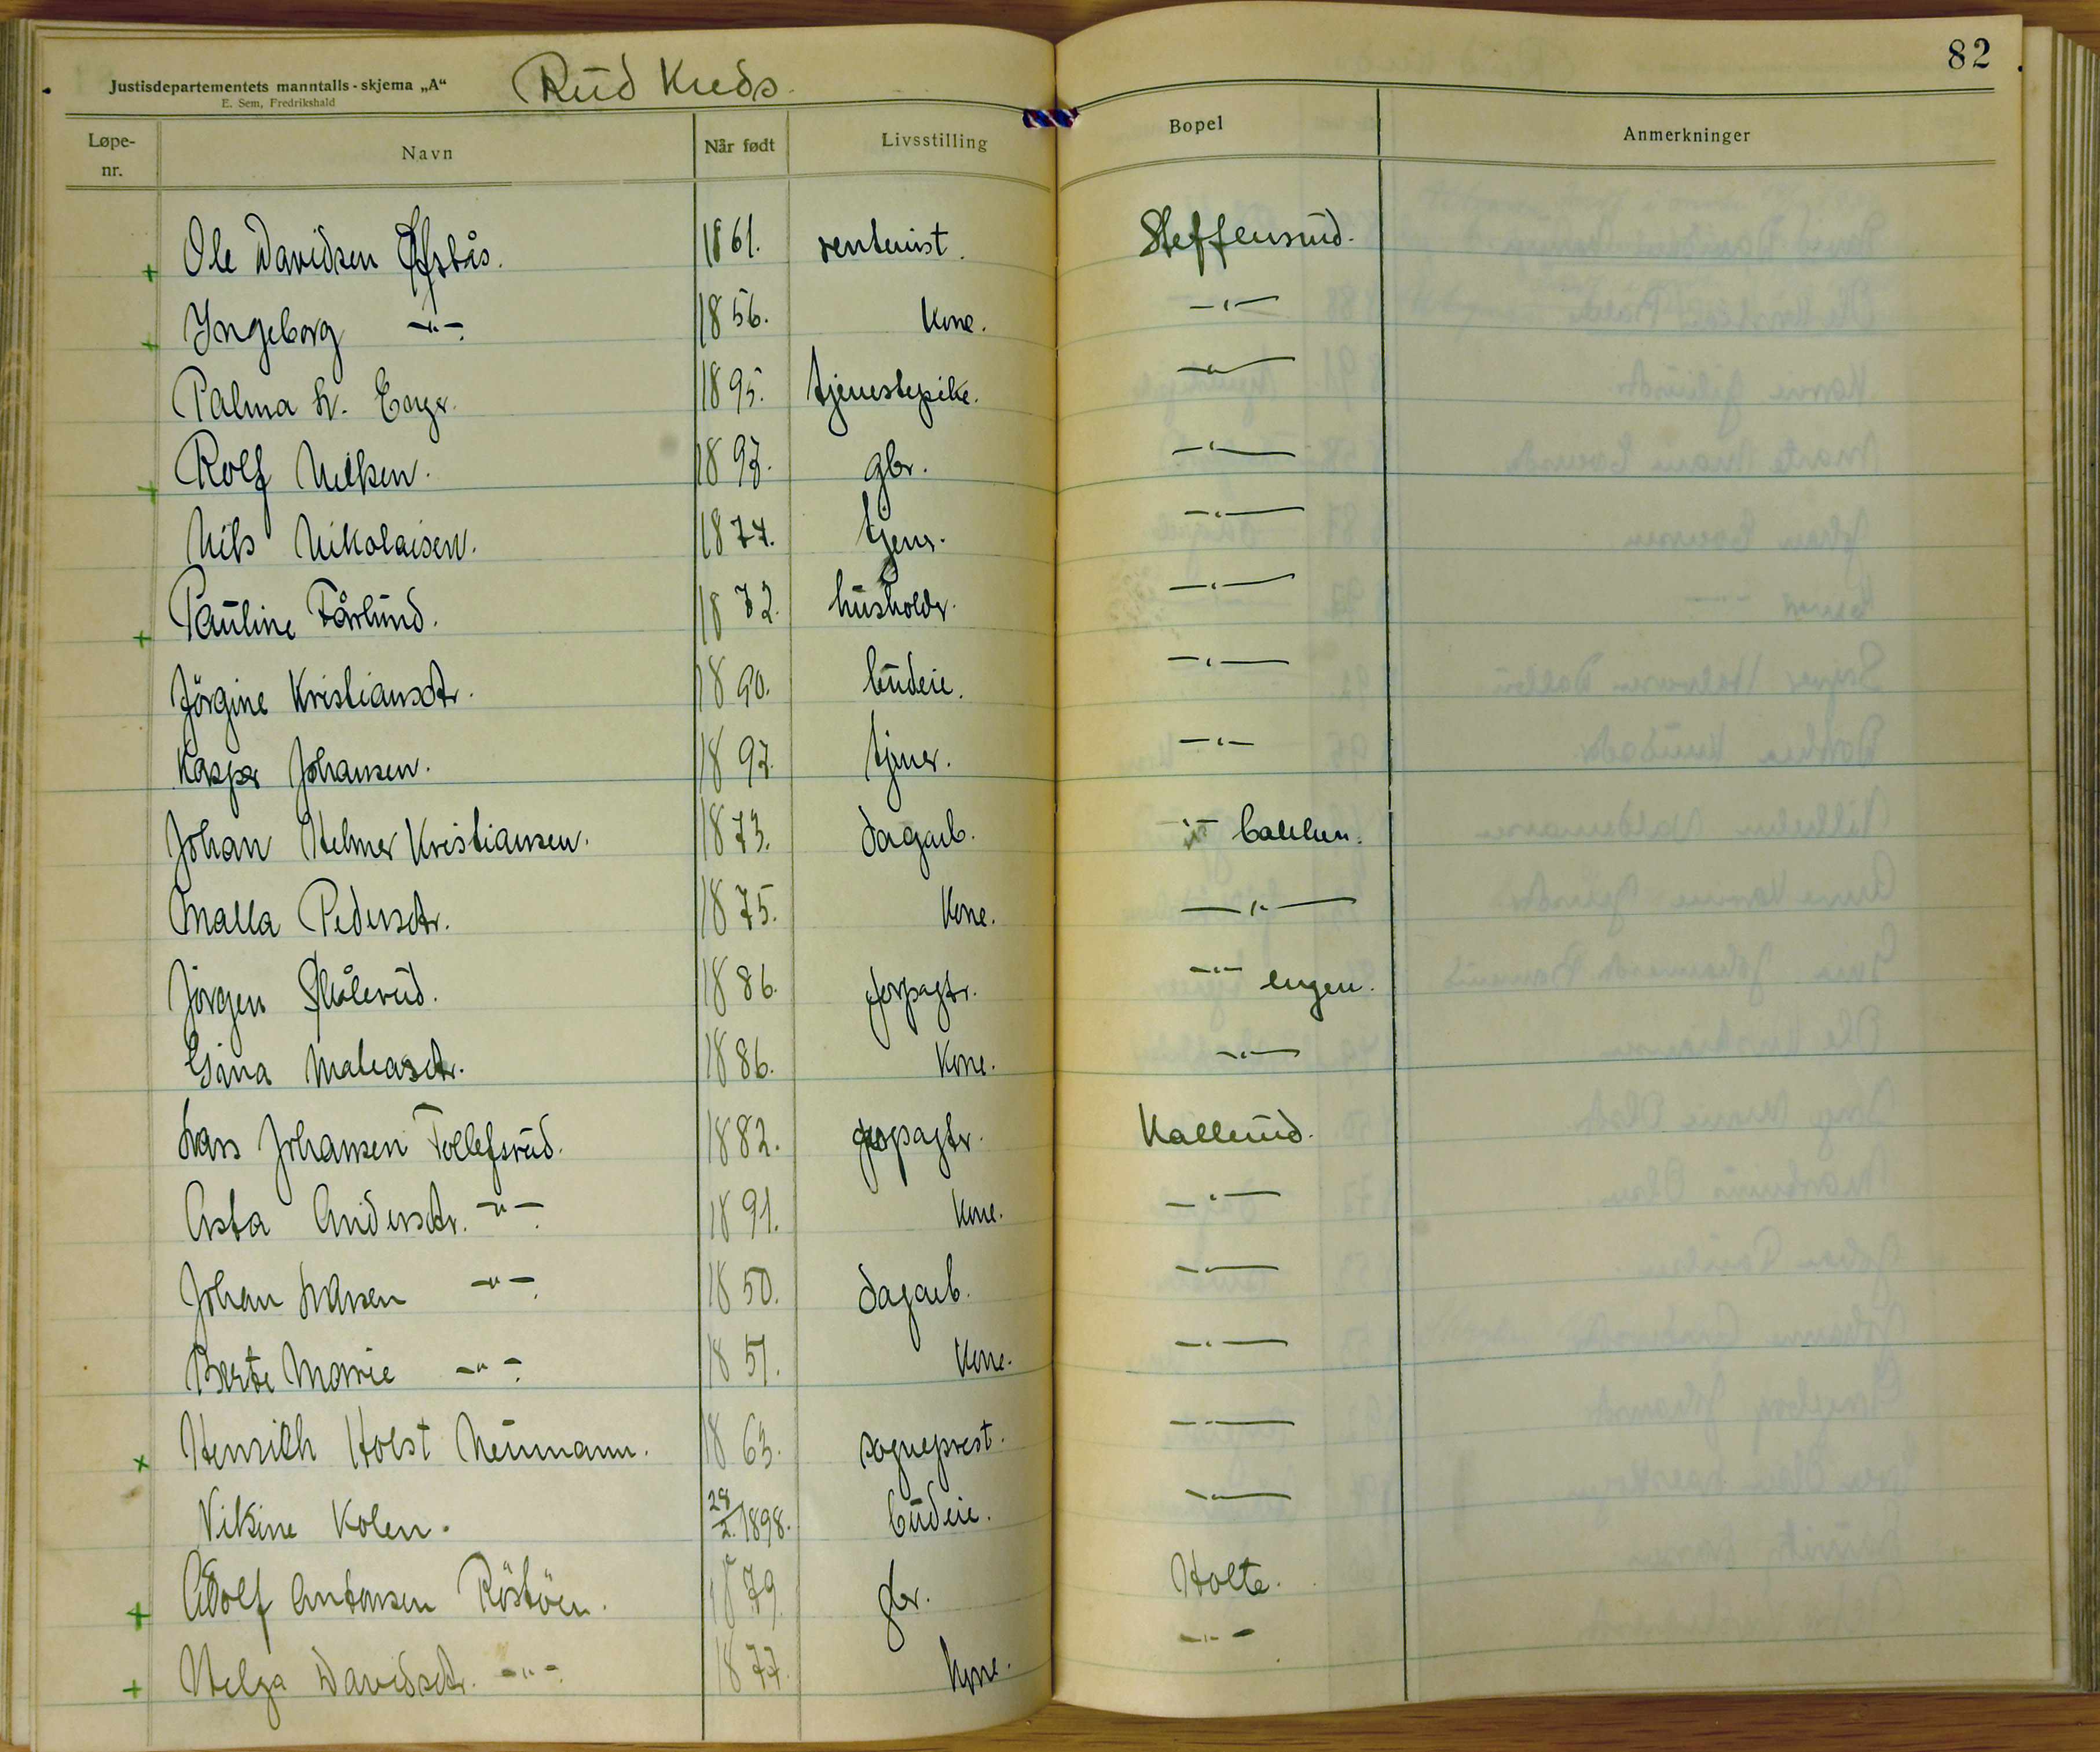 Justisdepartementets manntalls-skjema „A“ Rud Kreds. 82
E. Sem, Fredrikshald
Løpe-nr. Navn Når født Livsstilling Bopel Anmerkninger
+ Ole Davidsen 1861. rentenist. Steffensrud.
+ Ingeborg -"- 1856. Kone. -"-
Palma L. 1895. tjenestepike. -"-
+ Rolf Nilsen. 1897. gbr. -"-
Nils Nikolaisen. 1877. tjener. -"-
+ Pauline Fårlund. 1872. husholdr. -"-
Jörgine Kristiansdtr. 1890. budeie. -"-
Kasper Johansen. 1897. tjener. -"-
Johan Helmer Kristiansen. 1873. dagarb. -"- bakken.
Malla Pedersdtr. 1875. Kone. -"-
Jörgen Skålerud. 1886. forpagtr. -"- engen.
Gina Matiasdtr. 1886. Kone. -"-
Lars Johansen Tollefsrud. 1882. forpagtr. Kallerud.
Asta Andersdtr. -"- 1891. Kone. -"-
Johan Larsen -"- 1850. dagarb. -"-
Berte Marie -"- 1851. Kone. -"-
+ Henrich Holst Neumann. 1863. sogneprest. -"-
Vikine Kolen. 28/2. 1898. budeie. -"-
+ Adolf Antonsen Röstöen. 1879. gbr. Holte.
+ Helga Davidsdtr. -"- 1877. Kone. -"-